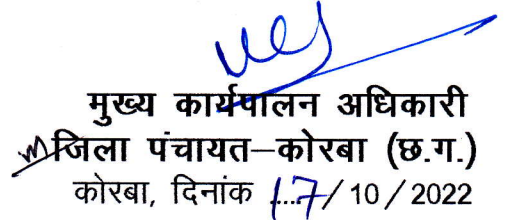 मुख्य कार्यपालन अधिकारी
जिला पंचायत–कोरबा (छ.ग.)
कोरबा, दिनांक ....17/10/2022